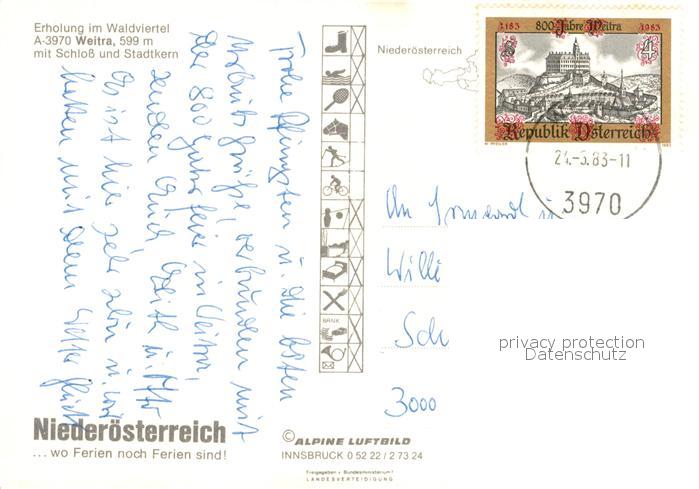 Erholung im Waldviertel
A-3970 Weitra, 599 m
mit Schloß und Stadtkern
Niederösterreich
1183 800 Jahre Weitra 1983
S 4
Republik Österreich
24.-5.83-11
3970
Frohe Pfingsten u. die besten
Urlaubsgrüße, verbunden mit
der 800 Jahrfeier in Weitra,
senden Euch Edith u. Otto
Es ist hier sehr schön u. wir
hatten mit dem Wetter Glück
An Irmgard u
Willi
Sch
3000
privacy protection
Datenschutz
BANK
Niederösterreich
... wo Ferien noch Ferien sind!
© ALPINE LUFTBILD
INNSBRUCK 0 52 22 / 2 73 24
Freigegeben v. Bundesministerium f.
LANDESVERTEIDIGUNG